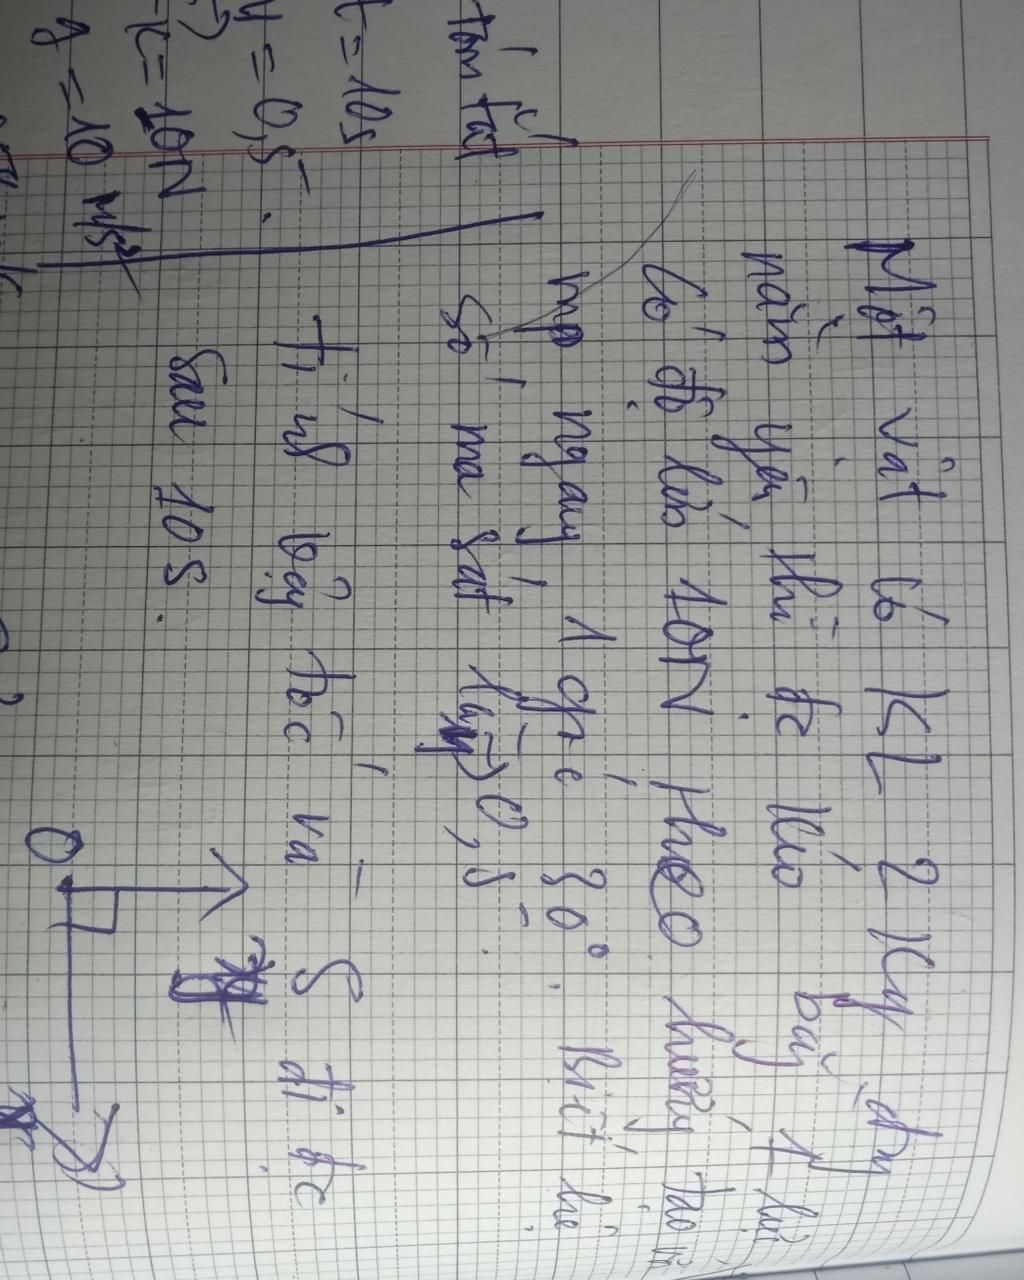 Một vật có KL 2 kg đg
nằm yên thì đc kéo bằng 1 lực
có độ lớn 10N theo hướng tạo vs
mp ngang 1 góc 30°. Biết hệ
số ma sát là 0,5.
tóm tắt
t = 10s
μ = 0,5
= 10N
g = 10 m/s²
Tính vận tốc và S đi đc
sau 10s.
O